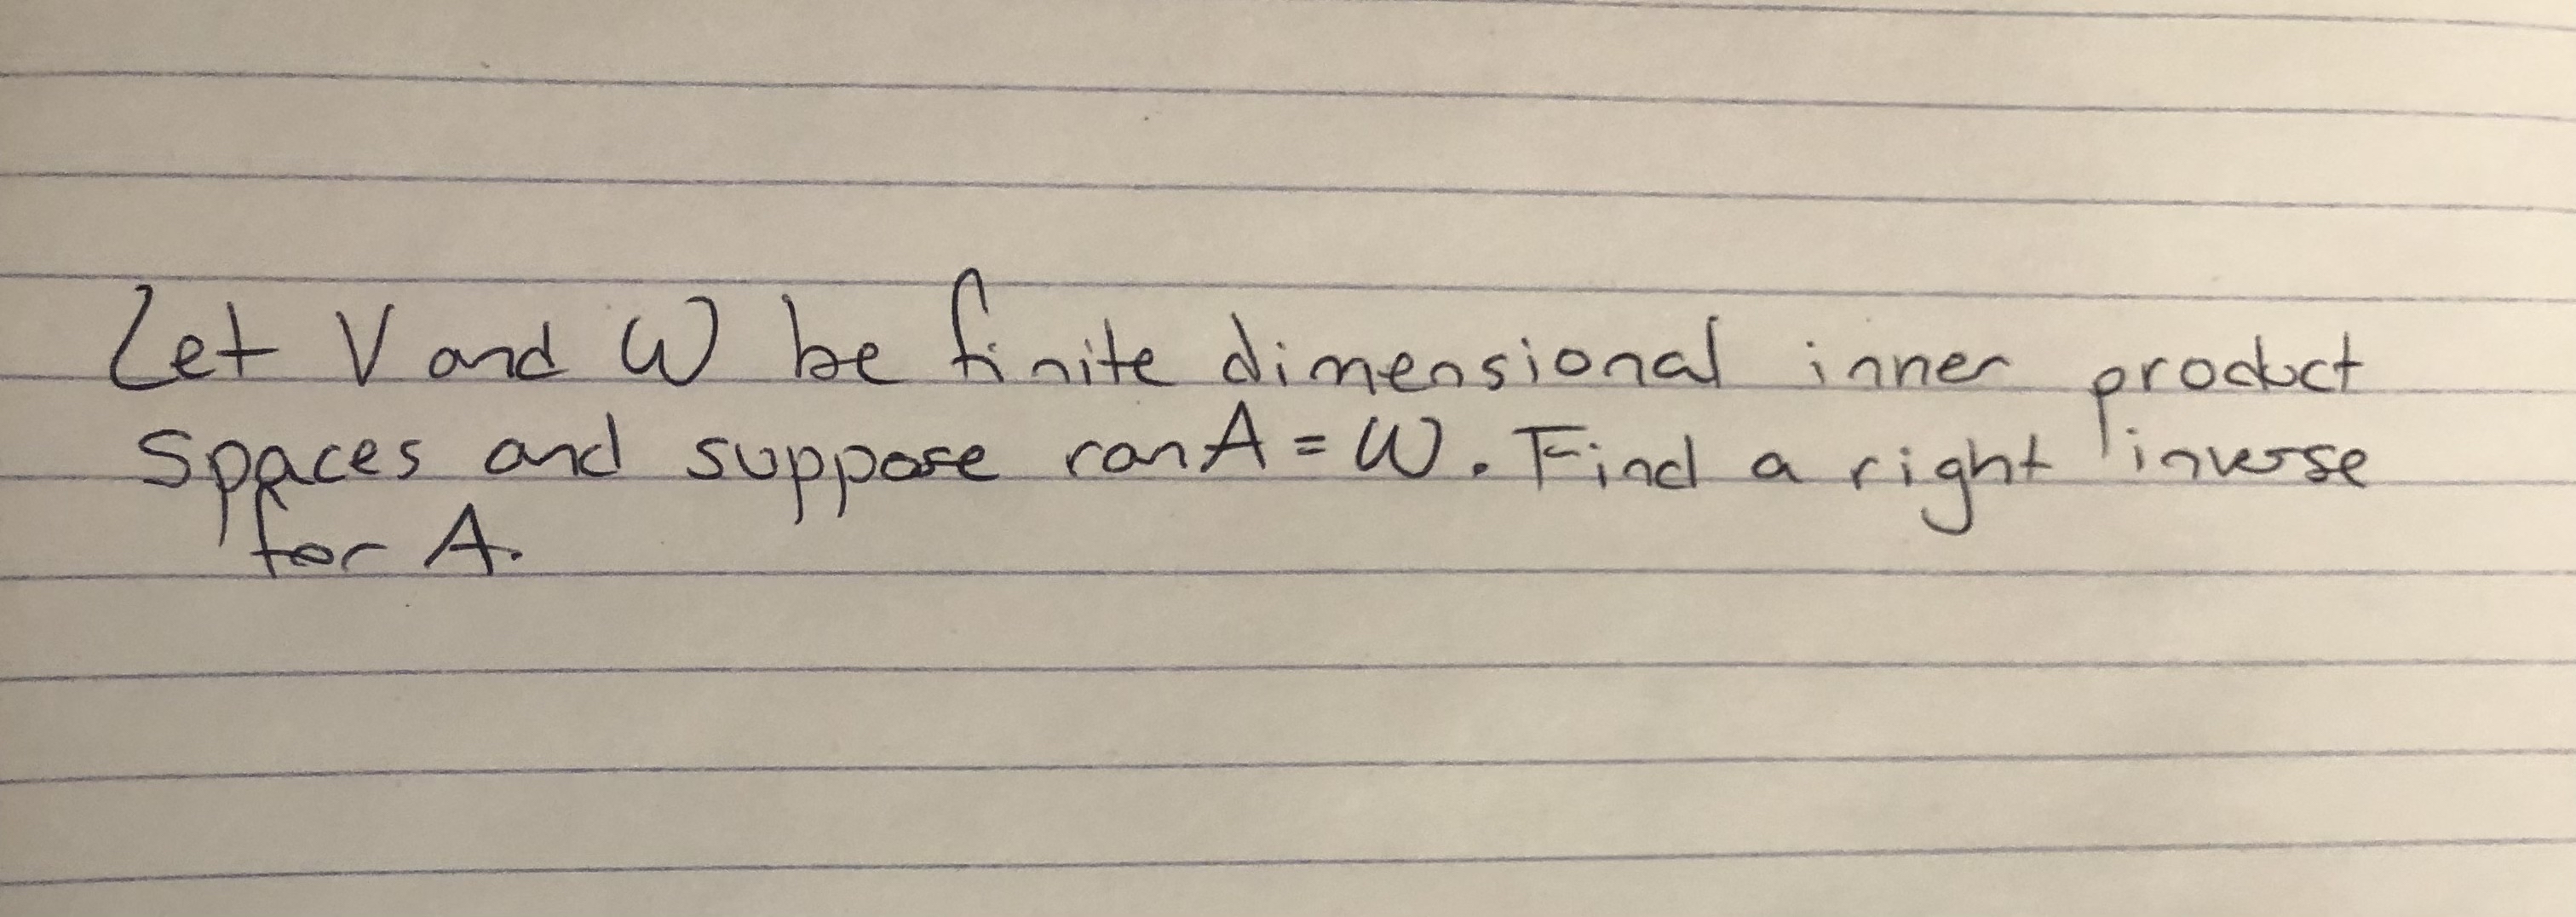 Let V and W be finite dimensional inner product
spaces and suppose ran A = W. Find a right inverse
for A.